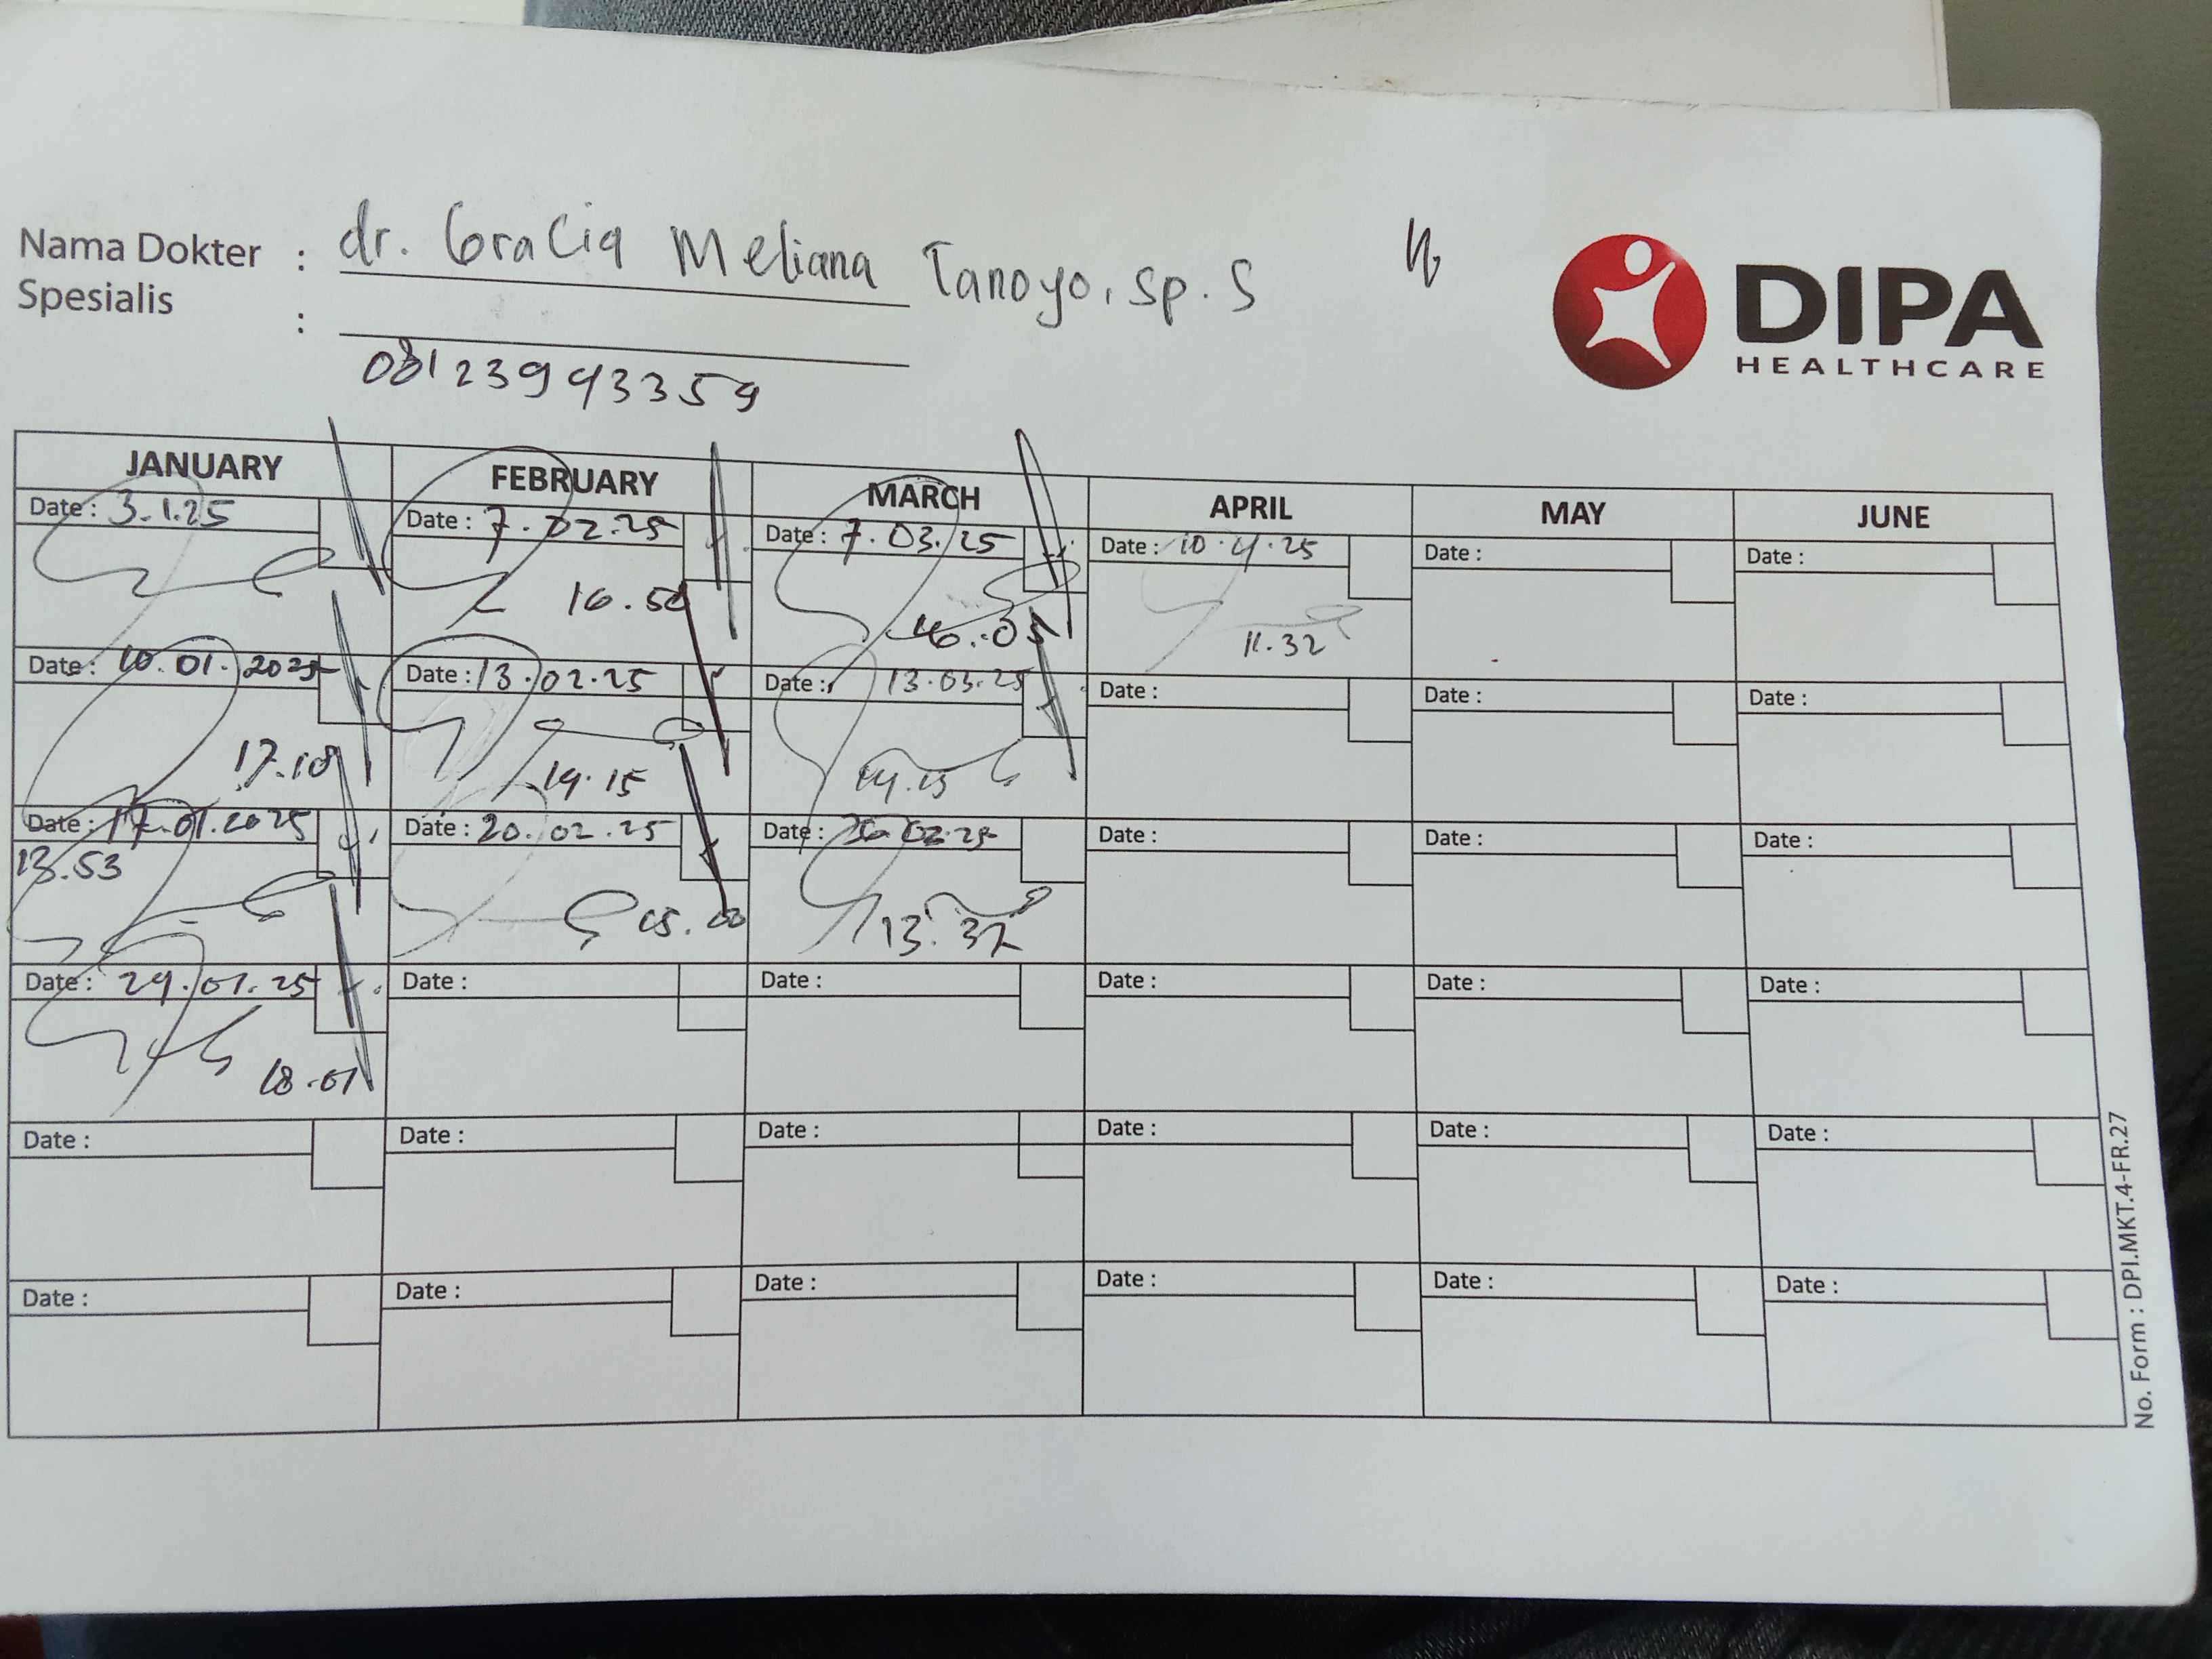 Nama Dokter : dr. Gracia Meliana Tanoyo, Sp. S
Spesialis :
08123993359
DIPA
HEALTHCARE
JANUARY FEBRUARY MARCH APRIL MAY JUNE
Date : 3.1.25 Date : 7.02.25 Date : 7.03.25 Date : 10.4.25 Date : Date :
16.50 16.05 11.32
Date : 10.01.2025 Date : 13.02.25 Date : 13.03.25 Date : Date : Date :
17.18 14.15 14.15
Date : 17.01.2025 Date : 20.02.25 Date : Date : Date : Date :
13.53 15.00 13.37
Date : 29.01.25 Date : Date : Date : Date : Date :
18.01
Date : Date : Date : Date : Date : Date :
Date : Date : Date : Date : Date : Date :
No. Form : DPI.MKT.4-FR.27